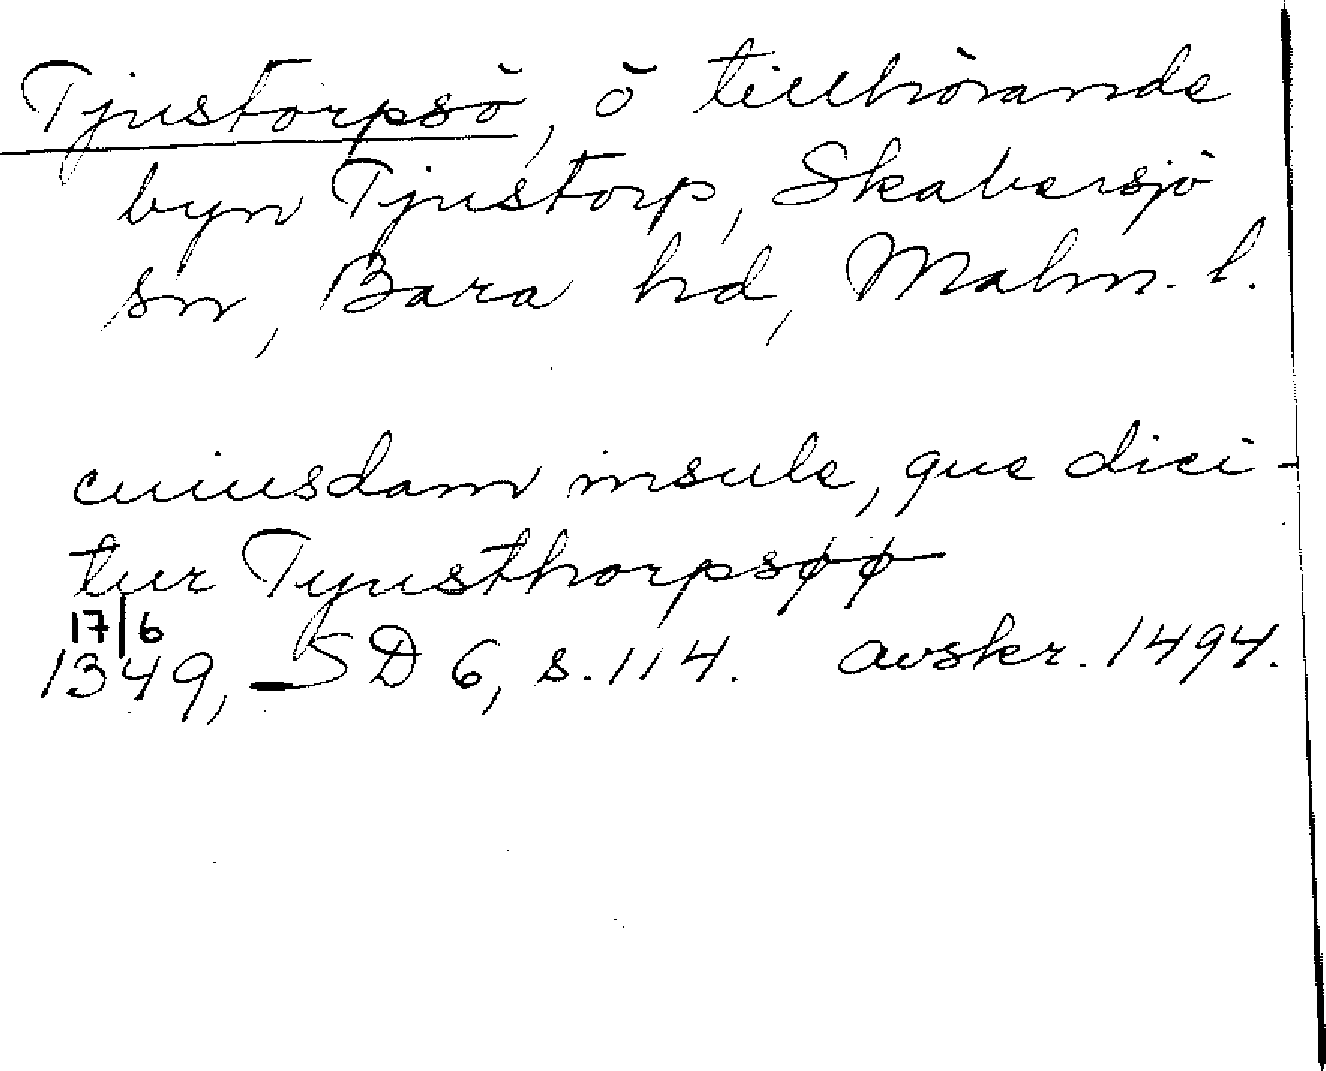 Tjustorpsö, ö tillhörande
byn Tjustorp, Skabersjö
sn, Bara hd, Malm. l.
cuiusdam insule, que dici-
tur Tyusthorpsøø
17/6
1349, SD 6, s. 114. avskr. 1494.